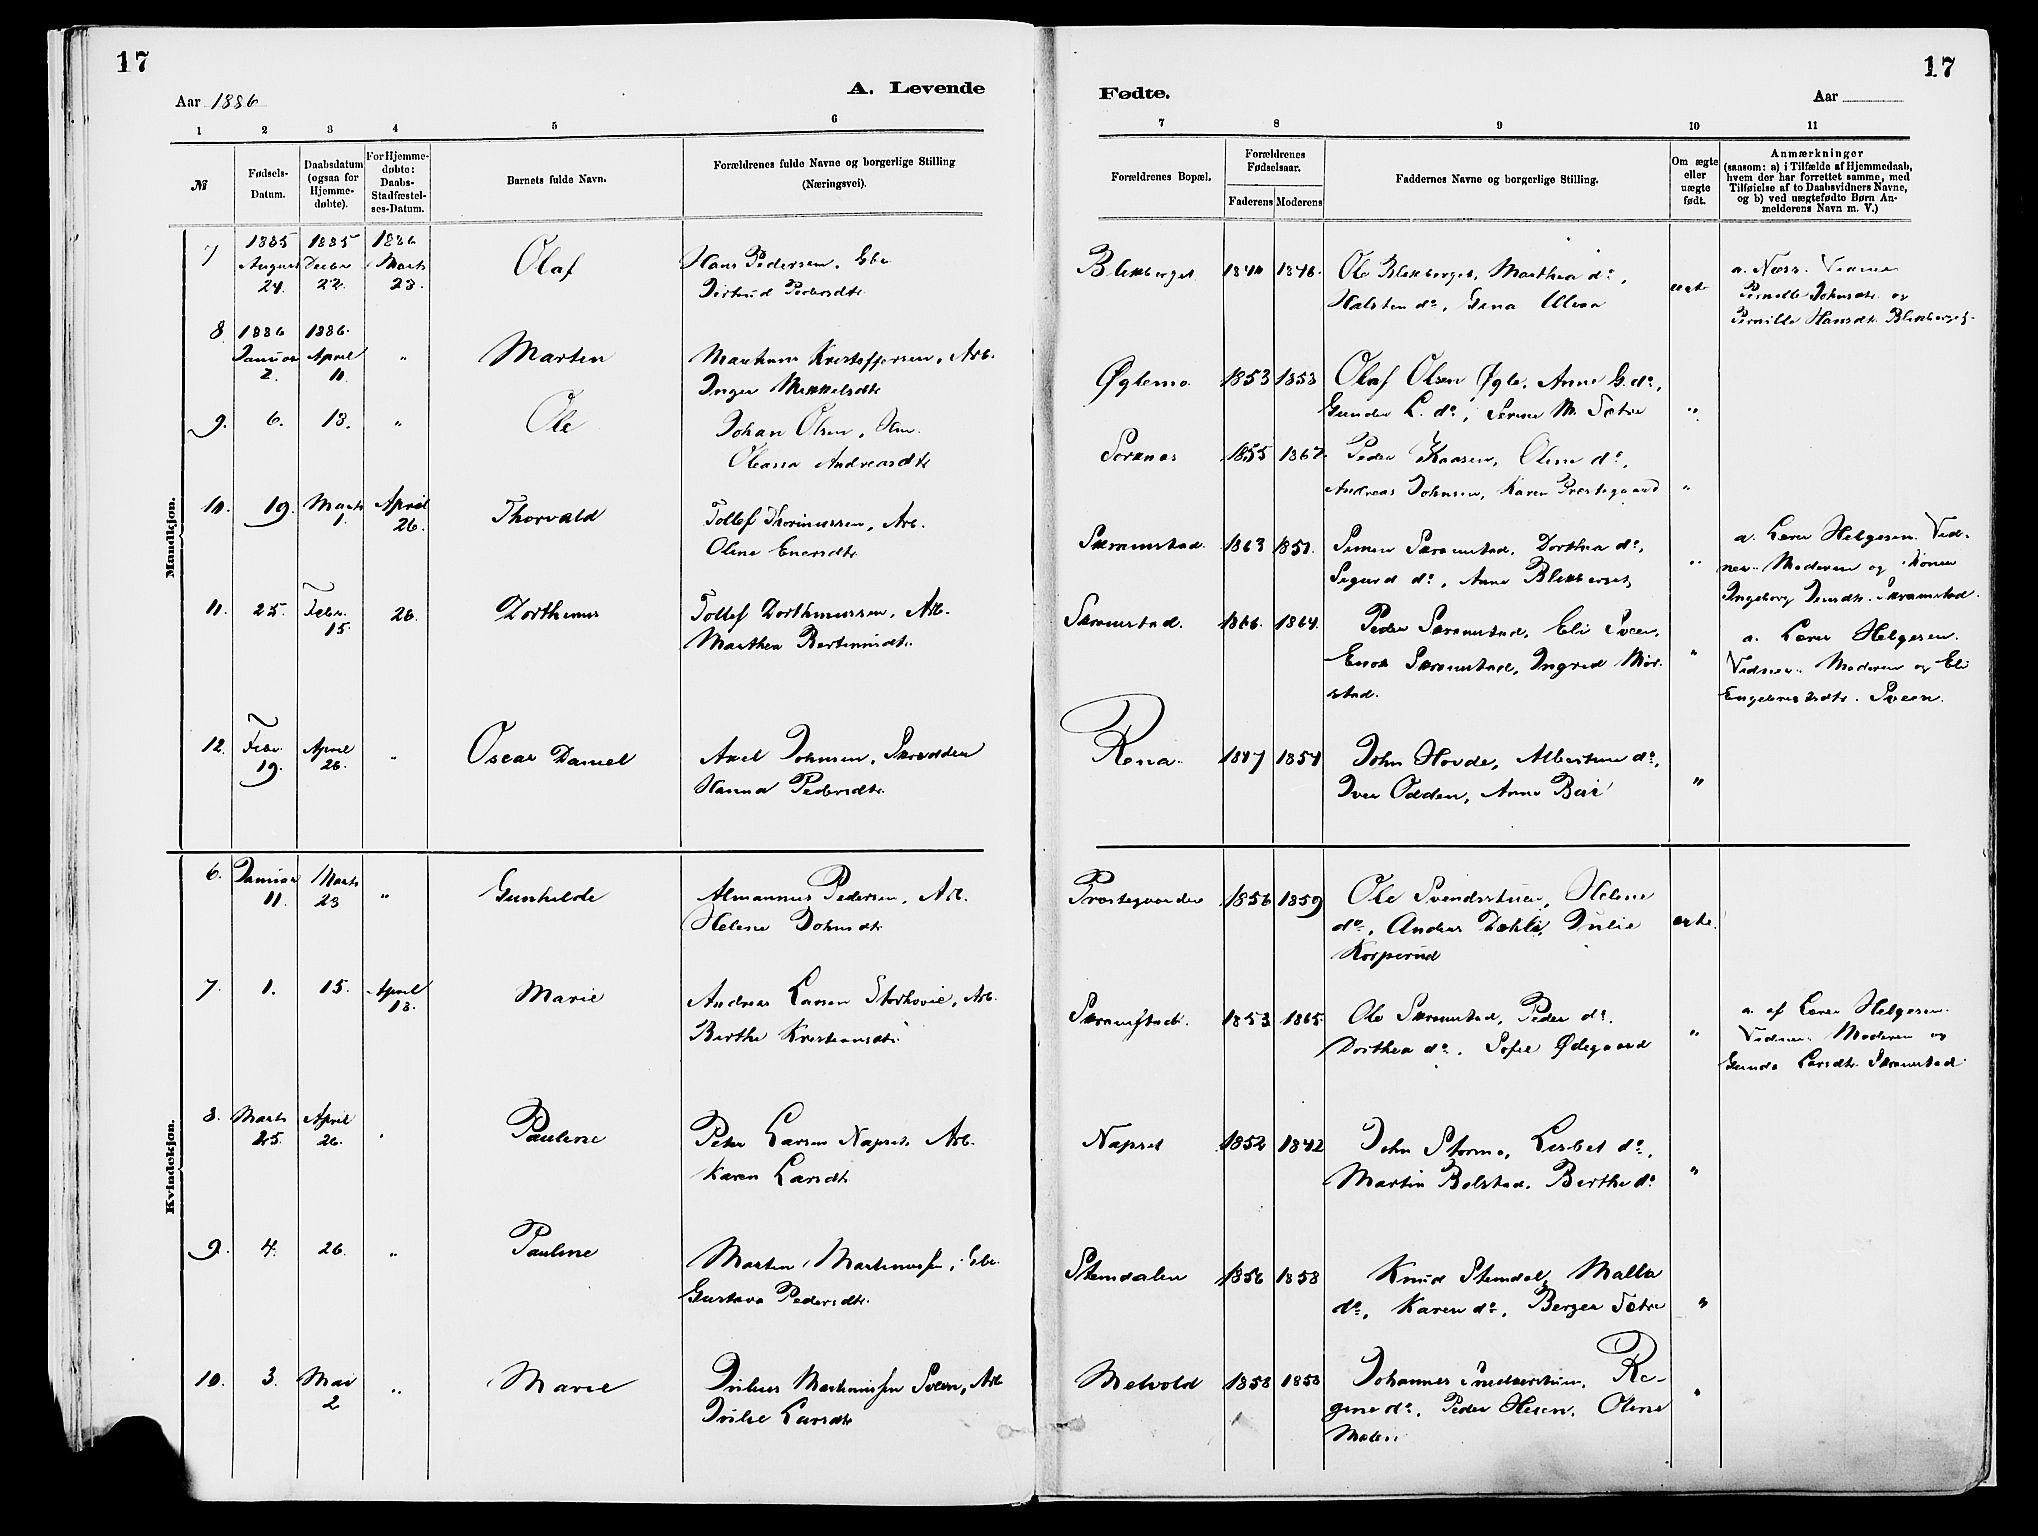 17
Aar 1886
A. Levende
1 2 3 4 5 6
№
Fødsels-
Datum.
Daabsdatum
(ogsaa for
Hjemme-
døbte).
For Hjemme-
døbte:
Daabs-
Stadfæstel-
ses-Datum.
Barnets fulde Navn.
Forældrenes fulde Navne og borgerlige Stilling
(Næringsvei).
Mandkjøn.
7
1885
August
24.
1885
Decbr
22.
1886
Marts
23.
Olaf
Hans Pedersen,
Pedersdtr
8
1886
Januar
2.
1886.
April
11.
"
Marten
Kristoffersen, Arb.
Inger Mikkelsdtr
9.
6.
13.
"
Ole
Johan Olsen,
Oleana Andreasdtr
10.
19.
Marts
1.
April
26.
Thorvald
Tollef Thorinussen, Arb.
Oline
11.
25.
Febr.
15.
26.
Dorthinus
Tollef Dorthinussen, Arb.
Marthea Bertinusdtr.
12.
Febr.
19.
April
26.
"
Oscar Daniel
Axel Johnsen, Skrædder
Hanna Pedersdtr.
Kvindekjøn.
6.
Januar
11.
Marts
23
"
Gunhilde
Almannus Pedersen, Arb.
Helene Johnsdtr.
7.
1.
15.
April
13.
Marie
Andreas Larsen Storhovie, Arb.
Berthe Kristiansdtr.
8.
Marts
25.
April
26.
"
Pauline
Peter Larsen Napset, Arb.
Karen Larsdtr
9.
4.
26.
"
Pauline
Marten Martinussen,
Gustava Pedersdtr.
10.
3.
Mai
2
"
Marie
Julius Martinussen Sveen, Arb
Julie Larsdtr
17
Fødte.
Aar
7 8 9 10 11
Forældrenes Bopæl.
Forældrenes
Fødselsaar.
Faderens Moderens
Faddernes Navne og borgerlige Stilling.
Om ægte
eller
uægte
født.
Anmærkninger
(saasom: a) i Tilfælde af Hjemmedaab,
hvem der har forrettet samme, med
Tilføielse af to Daabsvidners Navne,
og b) ved uægtefødte Børn An-
melderens Navn m. V.)
Blekberget 1846.
Ole Blekberget, Marthea do,
Halsten do, Gina Ulvaa
ægte
a. Næss. Vidner
Pernille Johnsdtr. og
Pernille Hansdtr. Blekberget.
Øglemo 1853 1853
Olaf Olsen Øgle, Anne G. do,
Gunder L. do, Serine M. Sætre
"
Sorknes 1855 1867.
Peder Kaasen, Oline do,
Andreas Johnsen, Karen Præstegaard
"
Skramstad. 1863
Simen Skramstad, Dorthea do,
Sigurd do, Anne Blekberget
"
a. Lærer Helgesen. Vid-
ner: Moderen og Konen
Ingeborg Skramstad.
Skramstad. 1866. 1864.
Peder Skramstad, Eli Sveen,
Enok Skramstad, Ingrid Mör-
stad.
"
a. Lærer Helgesen.
Vidner: Moderen og Eli
Engebretsdtr. Sveen.
Rena. 1847 1854
John Hovde, Albertine do,
Iver Odden, Anne Berè
"
Præstegaarden 1856 1859
Ole Svendsstuen, Helene
do, Anders Dæhli, Julie
Korperud
ægte.
Skramstad. 1853 1865.
Ole Skramstad, Peder do.
Dorthea do. Sofie Ødegaard
"
a. af Lærer Helgesen.
Vidner: Moderen og
Gunda Larsdtr. Skramstad
Napset 1852 1842
John Stormo, Lisbet do,
Martin Bolstad, Berthe do
"
Stemdalen 1856 1858
Knud Stemdal, Malla
do, Karen do, Berger Sætre
"
Melvold 1858 1858
Johannes Smedserstuen, Re-
gine do. Peder Hesen. Oline
"